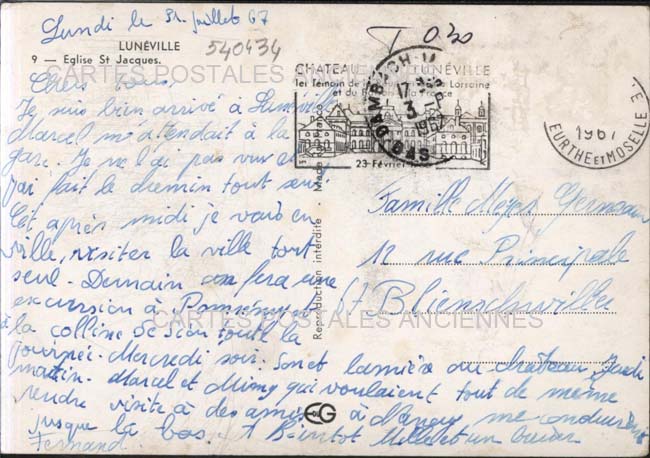 Lundi le 31 juillet 67
LUNÉVILLE
9 — Eglise St Jacques.
540434
T 0.30
CARTES POSTALES ANCIENNES
CHATEAU LUNÉVILLE
23 Février
DAMBACH
17
3
1967
BAS
1967
EURTHE ET MOSELLE
Chers tous,
Je suis bien arrivé à Lunéville
Marcel m'attendait à la
gare. Je ne l'ai pas vu et
j'ai fait le chemin tout seul
Cet après midi je vais en
ville, visiter la ville tout
seul. Demain on fera une
excursion à et
à la colline de Sion toute la
journée. Mercredi soir. Son et lumière au château, Jeudi
matin. Marcel et Mimy qui voulaient tout de même
rendre visite à des amis à Nancy me conduiront
jusque là bas. A Bientot Mille et un baiser
Fernand
Reproduction interdite - Made in France
EG
Famille Meyer Germain
12 rue Principale
67 Blienschwiller
CARTES POSTALES ANCIENNES